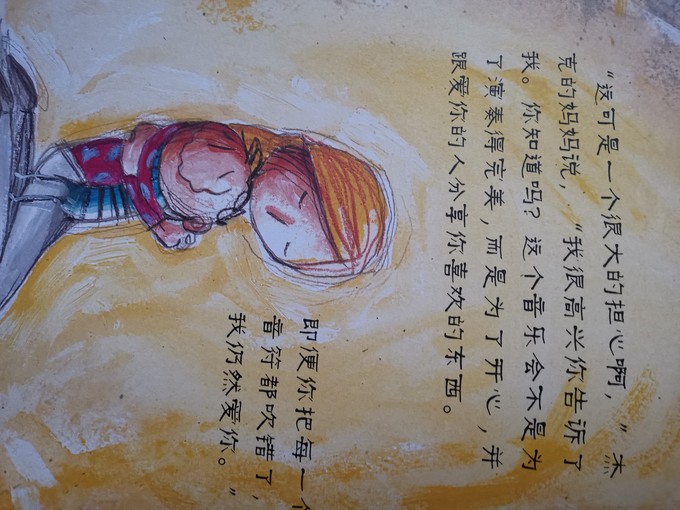 “这可是一个很大的担心啊，”杰
克的妈妈说，“我很高兴你告诉了
我。你知道吗？这个音乐会不是为
了演奏得完美，而是为了开心，并
跟爱你的人分享你喜欢的东西。
即便你把每一个
音符都吹错了，
我仍然爱你。”